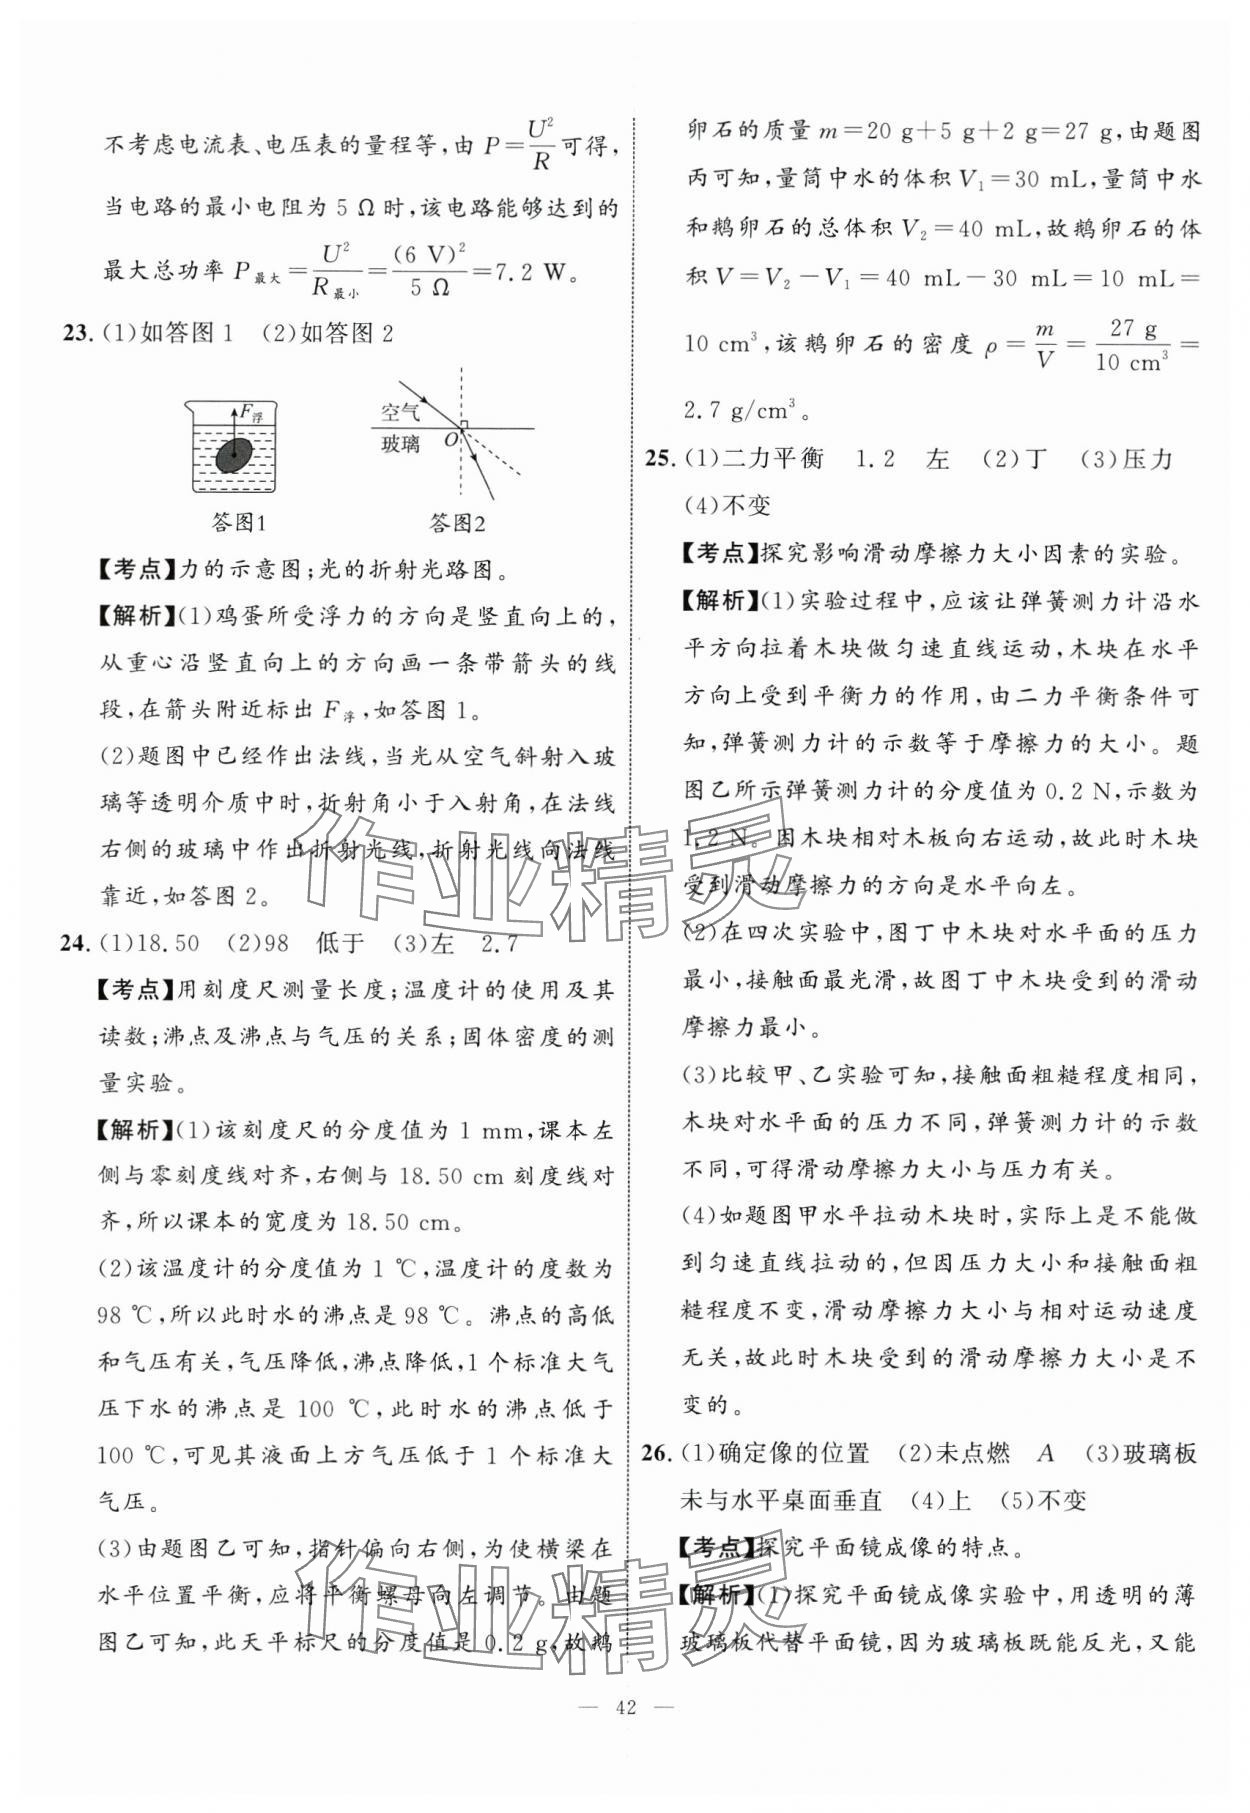 不考虑电流表、电压表的量程等,由 P=U²/R可得,
当电路的最小电阻为 5 Ω时,该电路能够达到的
最大总功率 P最大=U²/R最小=(6 V)²/5 Ω=7.2 W。
23. (1)如答图 1 (2)如答图 2
F浮
空气
玻璃
O
答图1
答图2
【考点】力的示意图;光的折射光路图。
【解析】(1)鸡蛋所受浮力的方向是竖直向上的,
从重心沿竖直向上的方向画一条带箭头的线
段,在箭头附近标出 F浮,如答图 1。
(2)题图中已经作出法线,当光从空气斜射入玻
璃等透明介质中时,折射角小于入射角,在法线
右侧的玻璃中作出折射光线,折射光线向法线
靠近,如答图 2。
24. (1)18.50 (2)98 低于 (3)左 2.7
【考点】用刻度尺测量长度;温度计的使用及其
读数;沸点及沸点与气压的关系;固体密度的测
量实验。
【解析】(1)该刻度尺的分度值为 1 mm,课本左
侧与零刻度线对齐,右侧与 18.50 cm 刻度线对
齐,所以课本的宽度为 18.50 cm。
(2)该温度计的分度值为 1 ℃,温度计的度数为
98 ℃,所以此时水的沸点是 98 ℃。沸点的高低
和气压有关,气压降低,沸点降低,1 个标准大气
压下水的沸点是 100 ℃,此时水的沸点低于
100 ℃,可见其液面上方气压低于 1 个标准大
气压。
(3)由题图乙可知,指针偏向右侧,为使横梁在
水平位置平衡,应将平衡螺母向左调节。由题
图乙可知,此天平标尺的分度值是 0.2 g,故鹅
卵石的质量 m=20 g+5 g+2 g=27 g,由题图
丙可知,量筒中水的体积 V₁=30 mL,量筒中水
和鹅卵石的总体积 V₂=40 mL,故鹅卵石的体
积 V=V₂-V₁=40 mL-30 mL=10 mL=
10 cm³,该鹅卵石的密度 ρ=m/V=27 g/10 cm³=
2.7 g/cm³。
25. (1)二力平衡 1.2 左 (2)丁 (3)压力
(4)不变
【考点】探究影响滑动摩擦力大小因素的实验。
【解析】(1)实验过程中,应该让弹簧测力计沿水
平方向拉着木块做匀速直线运动,木块在水平
方向上受到平衡力的作用,由二力平衡条件可
知,弹簧测力计的示数等于摩擦力的大小。题
图乙所示弹簧测力计的分度值为 0.2 N,示数为
1.2 N。因木块相对木板向右运动,故此时木块
受到滑动摩擦力的方向是水平向左。
(2)在四次实验中,图丁中木块对水平面的压力
最小,接触面最光滑,故图丁中木块受到的滑动
摩擦力最小。
(3)比较甲、乙实验可知,接触面粗糙程度相同,
木块对水平面的压力不同,弹簧测力计的示数
不同,可得滑动摩擦力大小与压力有关。
(4)如题图甲水平拉动木块时,实际上是不能做
到匀速直线拉动的,但因压力大小和接触面粗
糙程度不变,滑动摩擦力大小与相对运动速度
无关,故此时木块受到的滑动摩擦力大小是不
变的。
26. (1)确定像的位置 (2)未点燃 A (3)玻璃板
未与水平桌面垂直 (4)上 (5)不变
【考点】探究平面镜成像的特点。
【解析】(1)探究平面镜成像实验中,用透明的薄
玻璃板代替平面镜,因为玻璃板既能反光,又能
作业精灵
作业精灵
— 42 —